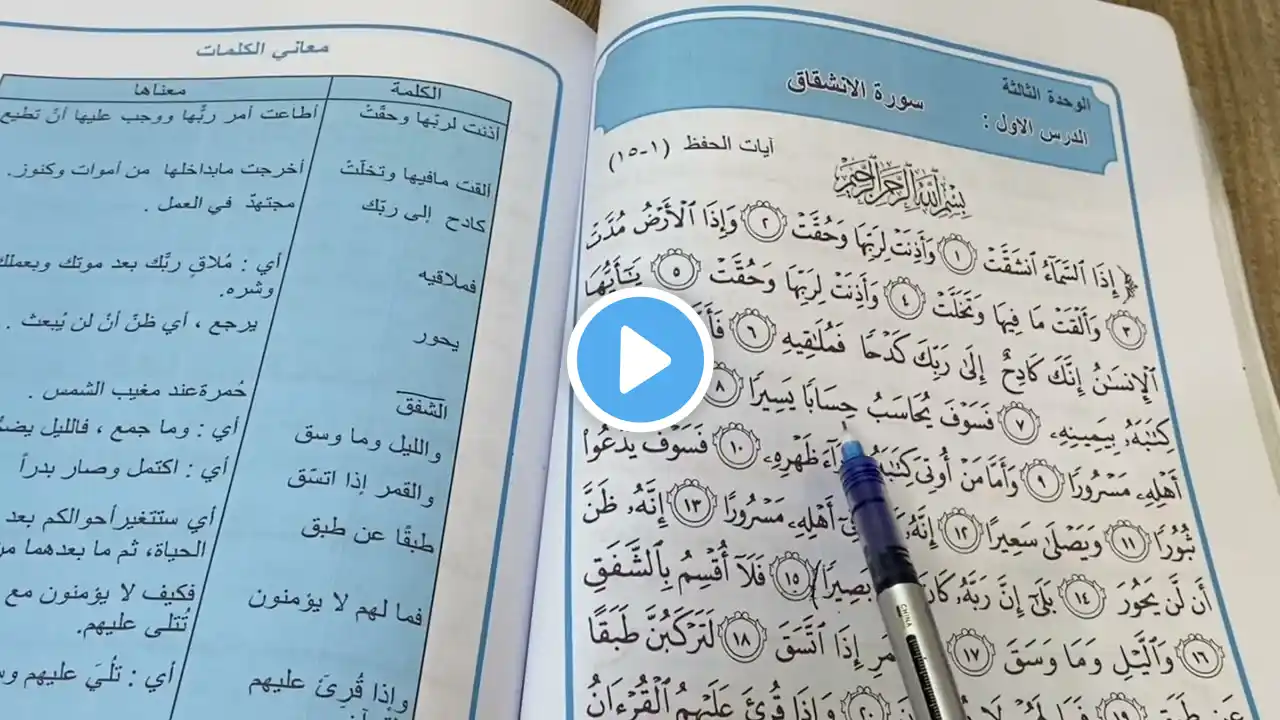 الوحدة الثالثة
الدرس الاول :
سورة الانشقاق
آيات الحفظ (١-١٥)
بِسْمِ اللَّهِ الرَّحْمَٰنِ الرَّحِيمِ
﴿ إِذَا ٱلسَّمَآءُ ٱنشَقَّتْ ١ وَأَذِنَتْ لِرَبِّهَا وَحُقَّتْ ٢ وَإِذَا ٱلْأَرْضُ مُدَّتْ
٣ وَأَلْقَتْ مَا فِيهَا وَتَخَلَّتْ ٤ وَأَذِنَتْ لِرَبِّهَا وَحُقَّتْ ٥ يَٰٓأَيُّهَا
ٱلْإِنسَٰنُ إِنَّكَ كَادِحٌ إِلَىٰ رَبِّكَ كَدْحًا فَمُلَٰقِيهِ ٦
كِتَٰبَهُۥ بِيَمِينِهِۦ ٧ فَسَوْفَ يُحَاسَبُ حِسَابًا يَسِيرًا ٨
أَهْلِهِۦ مَسْرُورًا ٩ وَأَمَّا مَنْ أُوتِيَ كِتَٰبَهُۥ ظَهْرِهِۦ ١٠ فَسَوْفَ يَدْعُوا۟
ثُبُورًا ١١ وَيَصْلَىٰ سَعِيرًا ١٢ إِنَّهُۥ أَهْلِهِۦ مَسْرُورًا ١٣ إِنَّهُۥ ظَنَّ
أَن لَّن يَحُورَ ١٤ بَلَىٰٓ إِنَّ رَبَّهُۥ كَانَ بَصِيرًا ﴾ ١٥ فَلَآ أُقْسِمُ بِٱلشَّفَقِ
١٦ وَٱلَّيْلِ وَمَا وَسَقَ ١٧ إِذَا ٱتَّسَقَ ١٨ لَتَرْكَبُنَّ طَبَقًا
عَن طَبَقٍ ١٩ فَمَا لَهُمْ لَا ٢٠ وَإِذَا قُرِئَ عَلَيْهِمُ ٱلْقُرْءَانُ
معاني الكلمات
الكلمة معناها
أذنت لربّها وحقّتْ أطاعت أمر ربُّها ووجب عليها أنْ تطيع
ألقت مافيها وتخلّتْ أخرجت مابداخلها من أموات وكنوز.
كادح إلى ربّك مجتهدّ في العمل .
فملاقيه أي : مُلاقِ ربَّك بعد موتك وبعملك
وشره.
يحور يرجع ، أي ظنّ أنْ لن يُبعث .
الشفق حُمرة عند مغيب الشمس .
والليل وما وسق أي : وما جمع ، فالليل
والقمر إذا اتسّق أي : اكتمل وصار بدراً
طبقًا عن طبق أي ستتغير أحوالكم بعد
الحياة، ثم ما بعدهما
فما لهم لا يؤمنون فكيف لا يؤمنون مع
تُتلى عليهم.
وإذا قُرِئَ عليهم أي : تُلِيَ عليهم
CHINA